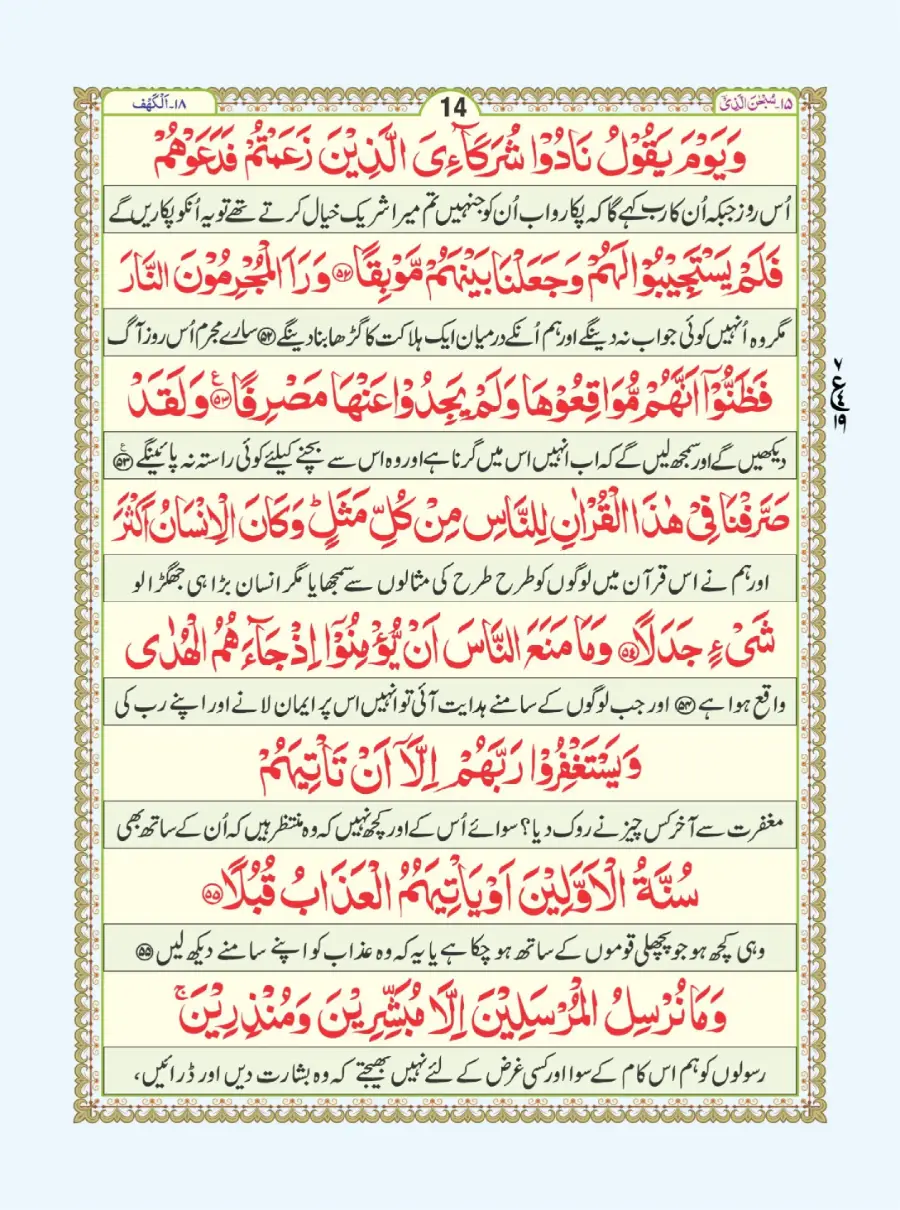 ۱۵۔ سُبْحٰنَ الَّذِیْۤ
14
۱۸۔ اَلْكَهْف
وَيَوْمَ يَقُوْلُ نَادُوْا شُرَكَآءِيَ الَّذِيْنَ زَعَمْتُمْ فَدَعَوْهُمْ
اُس روز جبکہ اُن کا رب کہے گا کہ پکارو اب اُن کو جنہیں تم میرا شریک خیال کرتے تھے تو یہ اُنکو پکاریں گے
فَلَمْ يَسْتَجِيْبُوْا لَهُمْ وَجَعَلْنَا بَيْنَهُمْ مَّوْبِقًا ﴿۵۲﴾ وَرَاَ الْمُجْرِمُوْنَ النَّارَ
مگر وہ اُنہیں کوئی جواب نہ دینگے اور ہم اُنکے درمیان ایک ہلاکت کا گڑھا بنا دینگے ﴿۵۲﴾ سارے مجرم اُس روز آگ
فَظَنُّوْۤا اَنَّهُمْ مُّوَاقِعُوْهَا وَلَمْ يَجِدُوْا عَنْهَا مَصْرِفًا ﴿۵۳﴾ ع وَلَقَدْ
دیکھیں گے اور سمجھ لیں گے کہ اب انہیں اس میں گرنا ہے اور وہ اس سے بچنے کیلئے کوئی راستہ نہ پائینگے ﴿۵۳﴾ ع
صَرَّفْنَا فِيْ هٰذَا الْقُرْاٰنِ لِلنَّاسِ مِنْ كُلِّ مَثَلٍ ؕ وَكَانَ الْاِنْسَانُ اَكْثَرَ
اور ہم نے اس قرآن میں لوگوں کو طرح طرح کی مثالوں سے سمجھایا مگر انسان بڑا ہی جھگڑالو
شَيْءٍ جَدَلًا ﴿۵۴﴾ وَمَا مَنَعَ النَّاسَ اَنْ يُّؤْمِنُوْۤا اِذْ جَآءَهُمُ الْهُدٰى
واقع ہوا ہے ﴿۵۴﴾ اور جب لوگوں کے سامنے ہدایت آئی تو انہیں اس پر ایمان لانے اور اپنے رب کی
وَيَسْتَغْفِرُوْا رَبَّهُمْ اِلَّاۤ اَنْ تَاْتِيَهُمْ
مغفرت سے آخر کس چیز نے روک دیا؟ سوائے اُس کے اور کچھ نہیں کہ وہ منتظر ہیں کہ اُن کے ساتھ بھی
سُنَّةُ الْاَوَّلِيْنَ اَوْ يَاْتِيَهُمُ الْعَذَابُ قُبُلًا ﴿۵۵﴾
وہی کچھ ہو جو پچھلی قوموں کے ساتھ ہو چکا ہے یا یہ کہ وہ عذاب کو اپنے سامنے دیکھ لیں ﴿۵۵﴾
وَمَا نُرْسِلُ الْمُرْسَلِيْنَ اِلَّا مُبَشِّرِيْنَ وَمُنْذِرِيْنَ ۚ
رسولوں کو ہم اس کام کے سوا اور کسی غرض کے لئے نہیں بھیجتے کہ وہ بشارت دیں اور ڈرائیں،